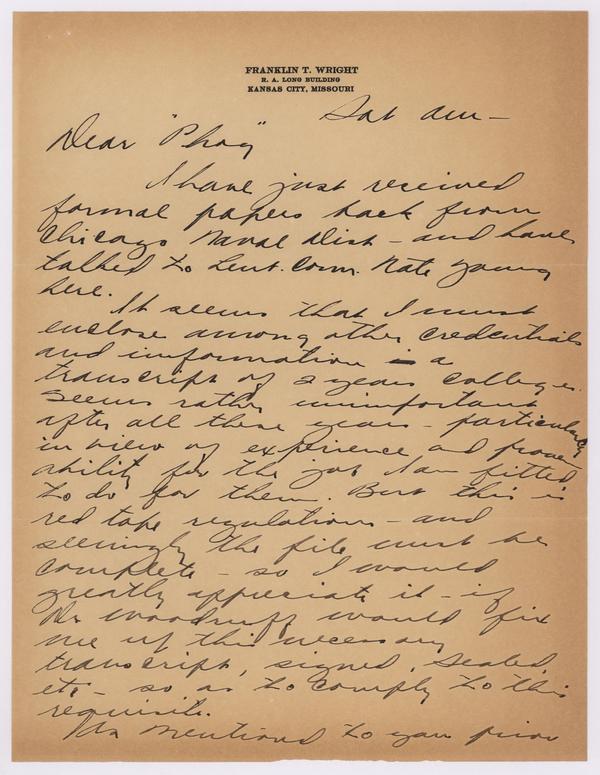 FRANKLIN T. WRIGHT
R. A. LONG BUILDING
KANSAS CITY, MISSOURI
Sat am -
Dear "Phog"
I have just received
formal papers back from
Chicago Naval Dist - and have
talked to Leut. Com. Nate Young
here.
It seems that I must
enclose among other credentials
and information - a
transcript of 2 years college.
Seems rather unimportant
after all these years - particularly
in view of experience and proven
ability for the job I am fitted
to do for them. But this is
red tape regulations - and
seemingly the file must be
complete - so I would
greatly appreciate it - if
Dr Woodruff would fix
me up this necessary
transcript, signed, sealed,
etc - so as to comply to this
requisite.
As mentioned to you prior